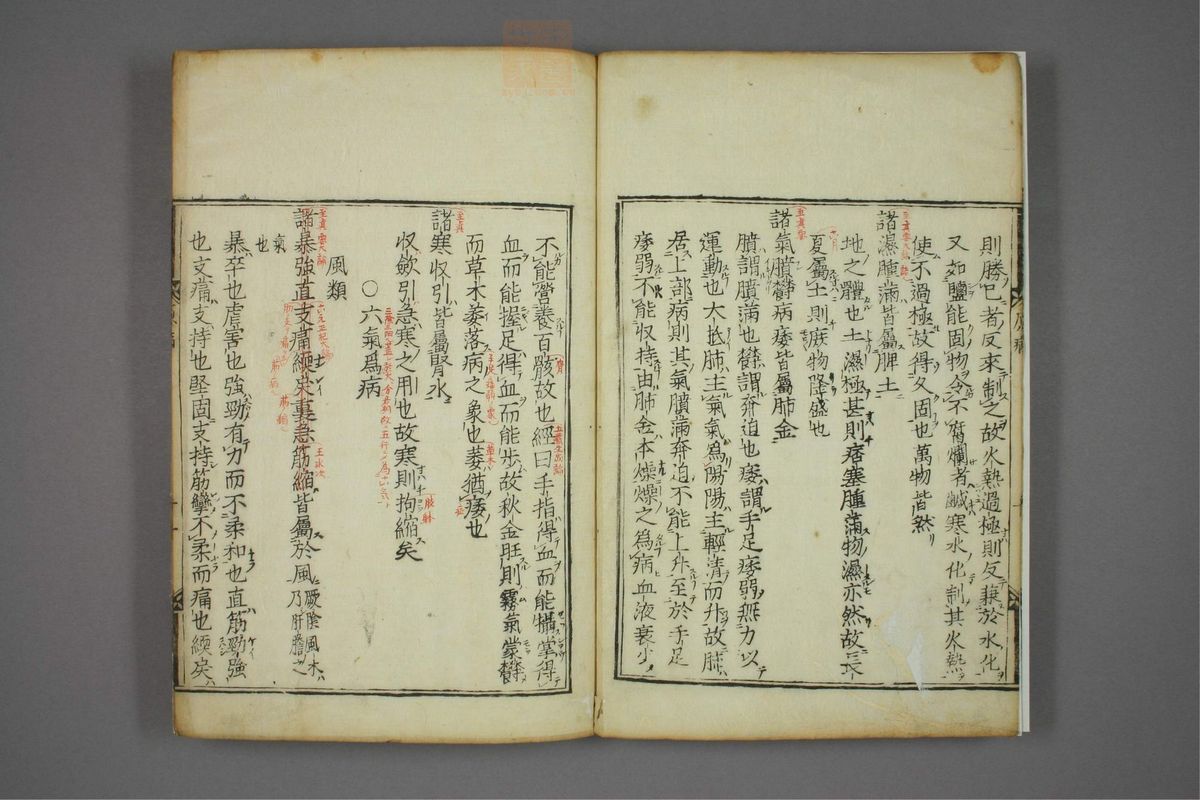 則勝已者反來制之故火熱過極則反兼於水化
又如鹽能固物令不腐爛者鹹寒水化制其火熱
使不過極故得久固也萬物皆然
諸濕腫滿皆屬脾土
地之體也土濕極甚則痞塞腫滿物濕亦然故長
夏屬土則庻物隆盛也
諸氣膹欝病痿皆屬肺金
膹謂膹滿也欝謂奔迫也痿謂手足痿弱無力以
運動也大抵肺主氣氣爲陽陽主輕清而升故肺
居上部病則其氣膹滿奔迫不能上升至於手足
痿弱不能收持由肺金本燥燥之爲病血液衰少
不能營養百骸故也經曰手指得血而能攝掌得
血而能握足得血而能步故秋金旺則霧氣蒙欝
而草木萎落病之象也萎猶痿也
諸寒收引皆屬腎水
收歛引急寒之用也故寒則拘縮矣
○六氣爲病
風類
諸暴強直支痛緛戾裏急筋縮皆屬於風厥陰風木乃肝膽之
氣也
暴卒也虐害也強勁有力而不柔和也直筋勁強
也支痛支持也堅固支持筋攣不柔而痛也緛戾